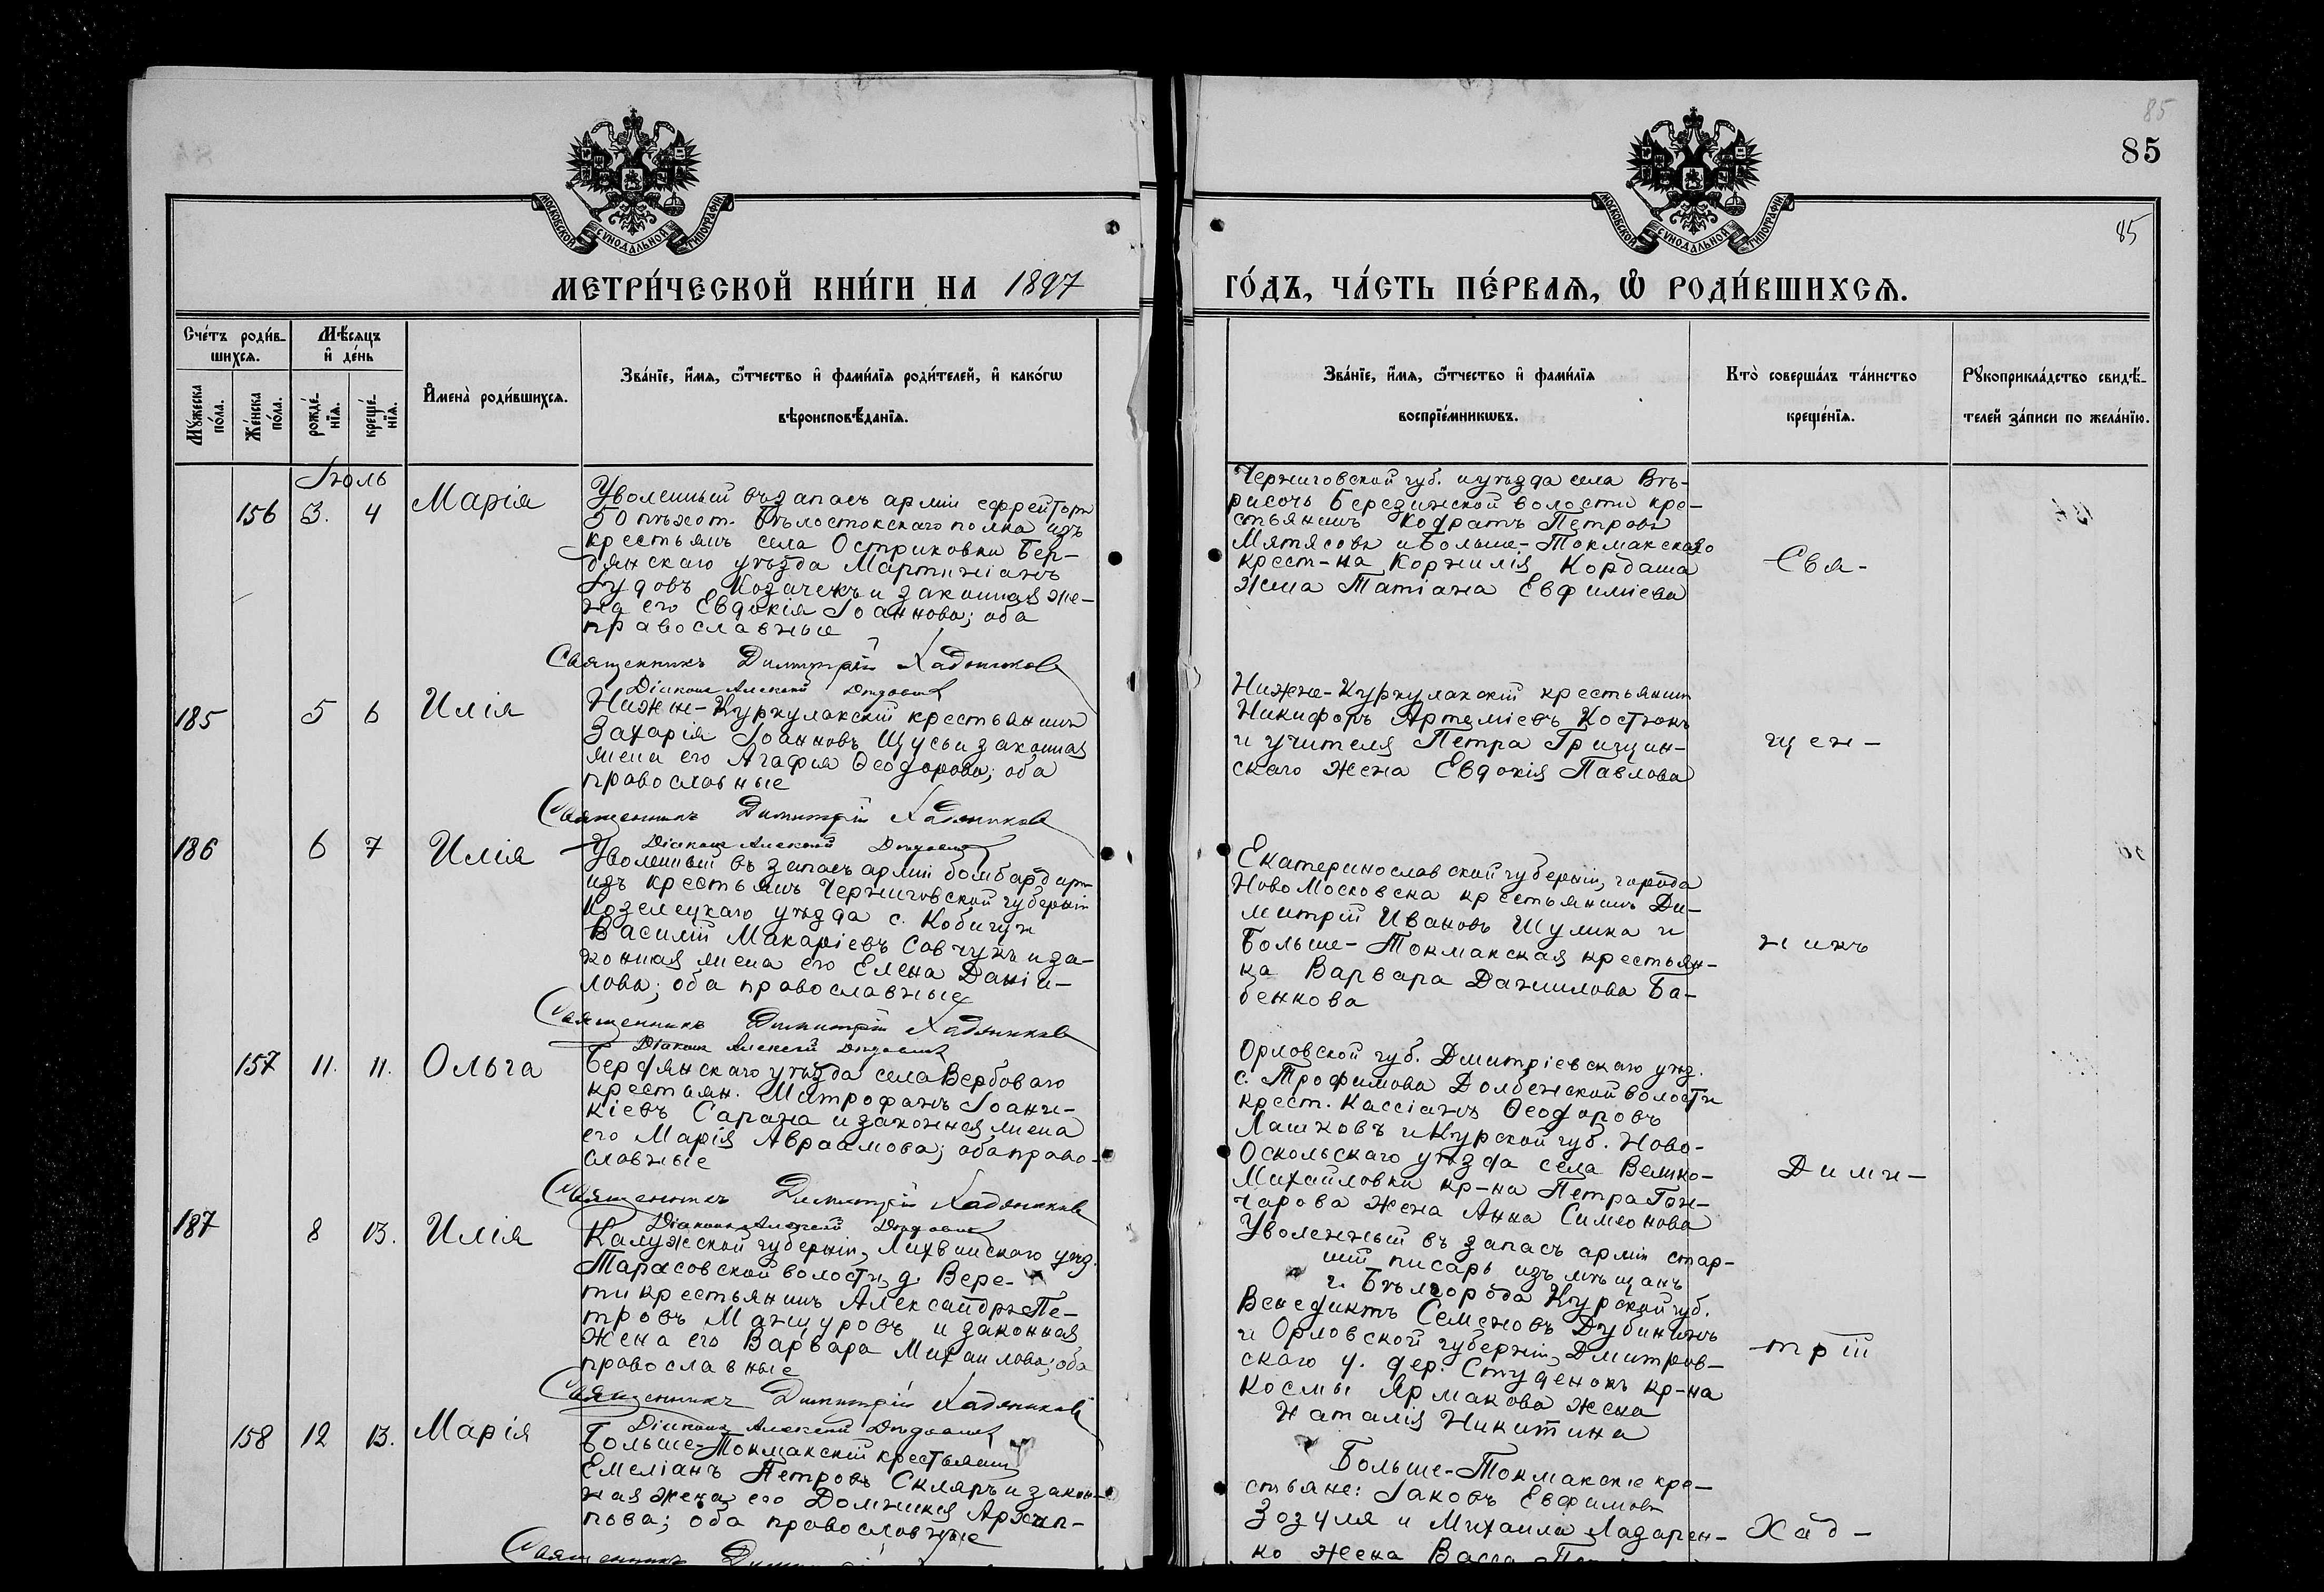 85
85
85
МОСКОВСКОЙ СѴНОДАЛЬНОЙ ТИПОГРАФІИ
МОСКОВСКОЙ СѴНОДАЛЬНОЙ ТИПОГРАФІИ
МЕТРИ́ЧЕСКОЙ КНИ́ГИ НА 1897
ГО́ДЪ, ЧА́СТЬ ПЕ́РВАѦ, Ѡ҆ РОДИ́ВШИХСѦ.
Сче́тъ роди́в-
шихсѧ.
Мѣ́сѧцъ
и҆ де́нь
Мꙋ́жеска
по́ла.
Же́нска
по́ла.
рожде́-
нїѧ.
креще́-
нїѧ.
И҆мена̀ роди́вшихсѧ.
Зва́нїе, и҆́мѧ, ѻ҆́тчество и҆ фами́лїѧ роди́телей, и҆ како́гѡ
вѣроисповѣ́данїѧ.
Зва́нїе, и҆́мѧ, ѻ҆́тчество и҆ фами́лїѧ
воспрїе́мникѡвъ.
Кто̀ соверша́лъ та́инство
креще́нїѧ.
Рꙋкоприкла́дство свидѣ́-
телей за́писи по жела́нїю.
Іюль
156 3. 4 Марія
Уволенный въ запасъ арміи ефрейторъ
50 пѣхот. Бѣлостокскаго полка изъ
крестьянъ села Остриковки Бер-
дянскаго уѣзда Мартиніанъ
Іудовъ Козаченъ и законная же-
на его Евдокія Іоаннова; оба
православные
Священникъ Димитрій Хадниковъ
Діаконъ Алексій
Черниговской губ. и уѣзда села Вы-
Березинской волости кре-
стьянинъ Кодратъ Петровъ
Мятясовъ и Больше-Токмакскаго
крест-на Корнилія Кордаша
жена Татіана Евфиміева
Свя-
185 5 6 Илія
Нижне-Куркулакскій крестьянинъ
Захарія Іоанновъ Щусь и законная
жена его Агафія Ѳеодорова; оба
православные
Священникъ Димитрій Хадниковъ
Діаконъ Алексій
Нижне-Куркулакскій крестьянинъ
Никифоръ Артеміевъ Костюкъ
и учителя Петра Грицин-
скаго жена Евдокія Павлова
щен-
186 6 7 Илія
Уволенный въ запасъ арміи бомбардиръ
изъ крестьянъ Черниговской губерніи
Козелецкаго уѣзда с. Кобищи
Василій Макаріевъ Савчукъ и за-
конная жена его Елена Даніи-
лова; оба православные
Священникъ Димитрій Хадниковъ
Діаконъ Алексій
Екатеринославской губерніи, города
НовоМосковска крестьянинъ Ди-
митрій Ивановъ Шулика и
Больше-Токмакская крестьян-
ка Варвара Даниилова Ба-
бенкова
никъ
157 11. 11. Ольга
Бердянскаго уѣзда села Вербоваго
крестьян. Митрофанъ Іоанни-
кіевъ Сарана и законная жена
его Марія Авраамова; оба право-
славные
Священникъ Димитрій Хадниковъ
Діаконъ Алексій
Орловской губ. Дмитріевскаго уѣз.
с. Трофимова Долбенской волости
крест. Кассіанъ Ѳеодоровъ
Лашковъ и Курской губ. Ново-
Оскольскаго уѣзда села Велико-
Михайловки кр-на Петра Гон-
чарова жена Анна Симеонова
Дими-
187 8 13. Илія
Калужской губерніи, Лихвинскаго уѣз.
Тарасовской волости, д. Вере-
ти крестьянинъ Александръ Пе-
тровъ Манцуровъ и законная
жена его Варвара Михаилова; оба
православные
Священникъ Димитрій Хадниковъ
Діаконъ Алексій
Уволенный въ запасъ арміи стар-
шій писарь изъ мѣщанъ
г. Бѣлгорода Курской губ.
Венедиктъ Семеновъ Дубининъ
и Орловской губерніи, Дмитров-
скаго у. дер. Студенокъ кр-на
Космы Ярмакова жена
Наталія Никитина
трій
158 12 13. Марія
Больше-Токмакскій крестьянинъ
Емеліанъ Петровъ Скляръ и закон-
ная жена его Домникія Архип-
пова; оба православные
Священникъ
Больше-Токмакскіе кре-
стьяне: Іаковъ Евфимовъ
Зозуля и Михаила Лазарен-
ко жена
Хад-